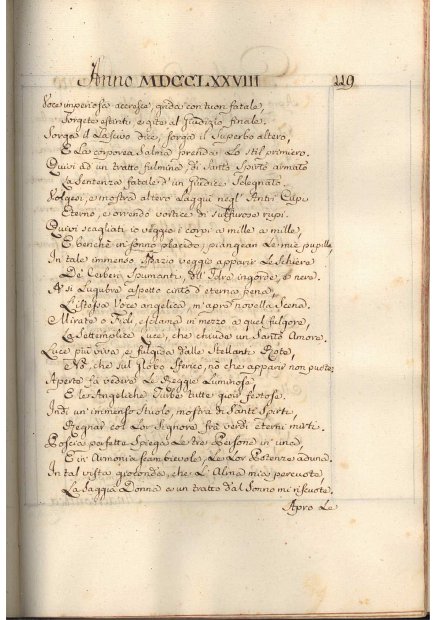 Anno MDCCLXXVIII 119
Voce imperiosa accresca, grida con tuon fatale,
Sorgete estinti e gite al Giudizio finale.
Sorga il Lascivo dice, sorga il Superbo altero,
E la corporea Salma prenda lo stil primiero.
Quivi ad un tratto fulmina, di Santo Spirto armato
La Sentenza fatale d'un Giudice
e mostra altero laggiù negl' Antri Cupi
Eterno, e orrendo vortice di sulfurose rupi.
Quivi scagliati io veggio i corpi a mille a mille,
E benchè in sonno placido, piangean le mie pupille,
In tale immenso spazio veggio apparir le schiere
De' Cerberi Spumanti, dell' Idre ingorde, e nere.
A sì lugubre aspetto cinto d'eterna pena,
La stessa Voce angelica, m'aprì novella Scena.
Mirate o esclama in mezzo a quel fulgore,
La Settemplice Luce, che chiude un Santo Amore.
Luce più viva e fulgida dalle Stellanti Rote,
Nò, che sul globo sferico, nò che apparir non puote.
Aperte fà vedere le Reggie Luminose,
E le Angeliche Turbe tutte
Indi un' immenso Stuolo, mostra di Santi Spirti,
Regnar col Lor Signore frà verdi eterni mirti.
Poscia Spiega le tre Persone in una,
E in Armonia scambievole, le Lor Potenze aduna.
In tal vista che L' Alma mia percuote,
La Saggia Donna a un tratto dal Sonno mi riscuote.
Apro Le